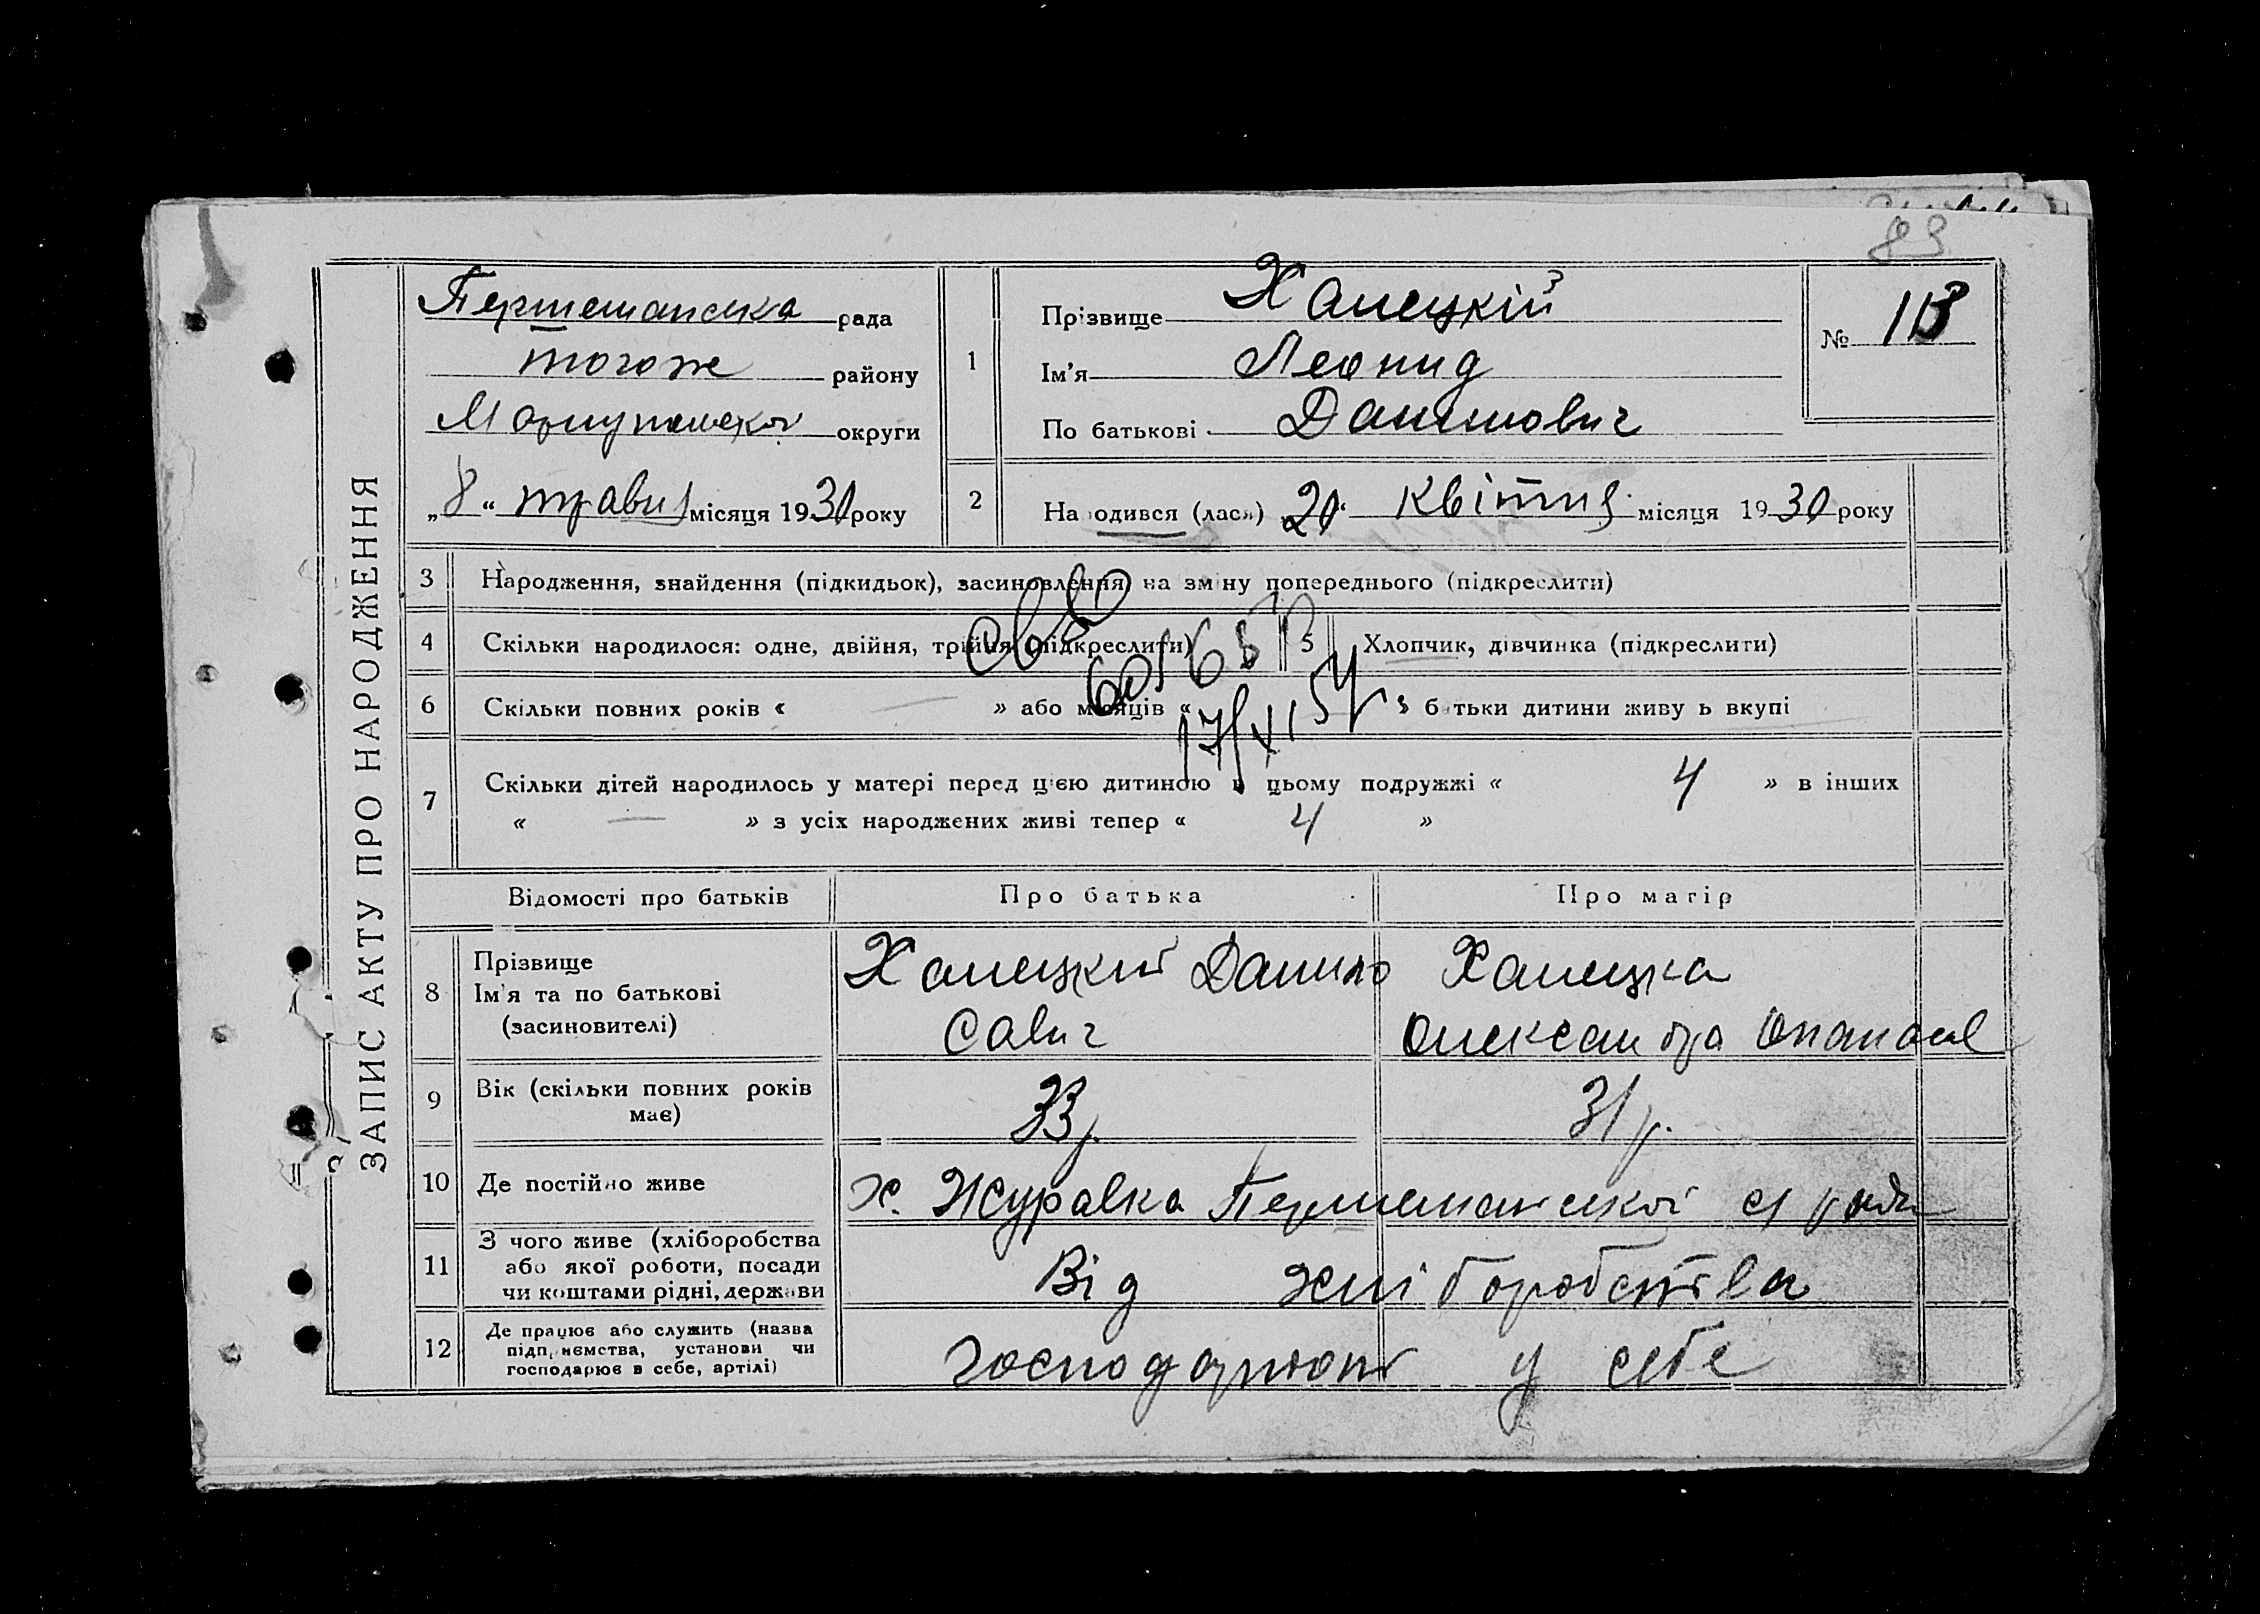 83
ЗАПИС АКТУ ПРО НАРОДЖЕННЯ
Першетравнева рада
тогож району
Маріупольської округи
„8“ травня місяця 1930 року
1
Прізвище Ханецкій
Ім'я Леонид
По батькові Данилович
№ 113
2
Народився (лася) 20 квітня місяця 1930 року
3 Народження, знайдення (підкидьок), засиновлення, на зміну попереднього (підкреслити)
4 Скільки народилося: одне, двійня, трійня (підкреслити)
5 Хлопчик, дівчинка (підкреслити)
6 Скільки повних років « — » або місяців « — » батьки дитини живуть вкупі
17/XI 54
7 Скільки дітей народилось у матері перед цією дитиною в цьому подружжі « 4 » в інших
« — » з усіх народжених живі тепер « 4 »
Відомості про батьків Про батька Про матір
8 Прізвище
Ім'я та по батькові
(засиновителі)
Ханецкий Данило
Савич
Ханецка
Олександра Опанас
9 Вік (скільки повних років має)
33 р.
31 р.
10 Де постійно живе
х. Журавка
11 З чого живе (хліборобства
або якої роботи, посади
чи коштами рідні, держави
Від хліборобства
12 Де працює або служить (назва
підприємства, установи чи
господарює в себе, артілі)
господарюют у себе